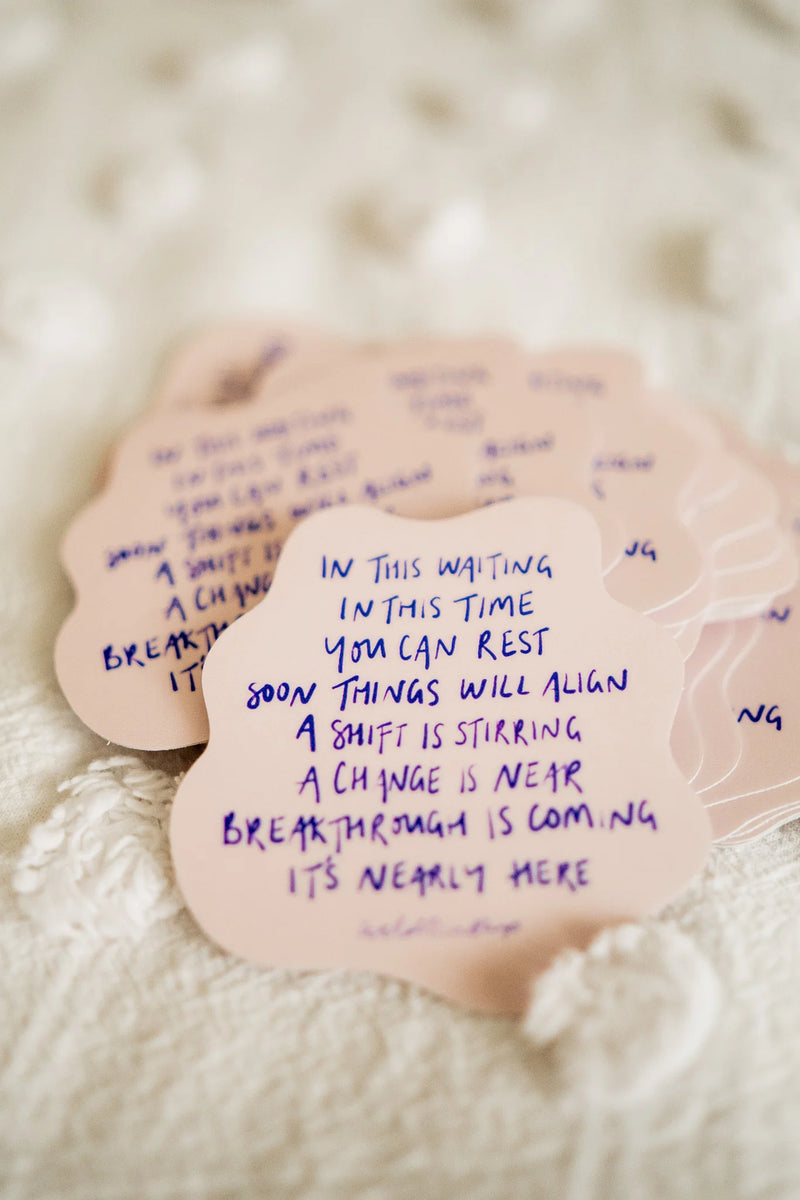 IN THIS WAITING
IN THIS TIME
YOU CAN REST
SOON THINGS WILL ALIGN
A SHIFT IS STIRRING
A CHANGE IS NEAR
BREAKTHROUGH IS COMING
IT'S NEARLY HERE
IN THIS WAITING
IN THIS TIME
YOU CAN REST
SOON THINGS WILL ALIGN
A SHIFT IS
A CHANG
BREAKTH
IT'S
WAITING
TIME
REST
ALIGN
NG
ALIGN
NG
NG